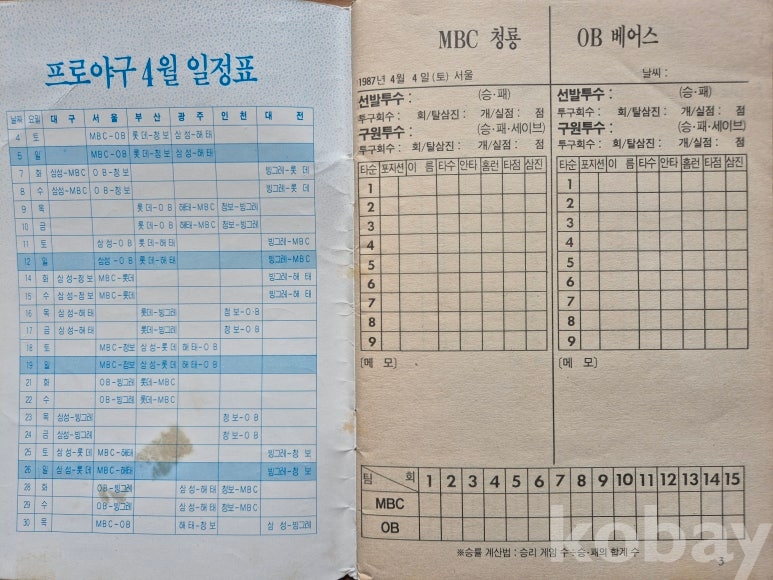 프로야구 4월 일정표
날짜 요일 대구 서울 부산 광주 인천 대전
4 토 MBC-OB 롯데-청보 삼성-해태
5 일 MBC-OB 롯데-청보 삼성-해태
7 화 삼성-MBC OB-청보 빙그레-롯데
8 수 삼성-MBC OB-청보 빙그레-롯데
9 목 롯데-OB 해태-MBC 청보-빙그레
10 금 롯데-OB 해태-MBC 청보-빙그레
11 토 삼성-OB 롯데-해태 빙그레-MBC
12 일 삼성-OB 롯데-해태 빙그레-MBC
14 화 삼성-청보 MBC-롯데 빙그레-해태
15 수 삼성-청보 MBC-롯데 빙그레-해태
16 목 삼성-해태 롯데-빙그레 청보-OB
17 금 삼성-해태 롯데-빙그레 청보-OB
18 토 MBC-청보 삼성-롯데 해태-OB
19 일 MBC-청보 삼성-롯데 해태-OB
21 화 OB-빙그레 롯데-MBC
22 수 OB-빙그레 롯데-MBC
23 목 삼성-빙그레 청보-OB
24 금 삼성-빙그레 청보-OB
25 토 삼성-롯데 MBC-해태 빙그레-청보
26 일 삼성-롯데 MBC-해태 빙그레-청보
28 화 OB-빙그레 삼성-해태 청보-MBC
29 수 OB-빙그레 삼성-해태 청보-MBC
30 목 MBC-OB 해태-청보 삼성-빙그레
MBC 청룡
1987년 4월 4일(토) 서울
선발투수 : (승·패)
투구회수 : 회/탈삼진 : 개/실점 : 점
구원투수 : (승·패·세이브)
투구회수 : 회/탈삼진 : 개/실점 : 점
타순 포지션 이름 타수 안타 홈런 타점 삼진
1
2
3
4
5
6
7
8
9
(메 모)
OB 베어스
날씨 :
선발투수 : (승·패)
투구회수 : 회/탈삼진 : 개/실점 : 점
구원투수 : (승·패·세이브)
투구회수 : 회/탈삼진 : 개/실점 : 점
타순 포지션 이름 타수 안타 홈런 타점 삼진
1
2
3
4
5
6
7
8
9
(메 모)
팀 회 1 2 3 4 5 6 7 8 9 10 11 12 13 14 15
MBC
OB
※승률 계산법 : 승리 게임 수÷승·패의 합계 수
3
kobay